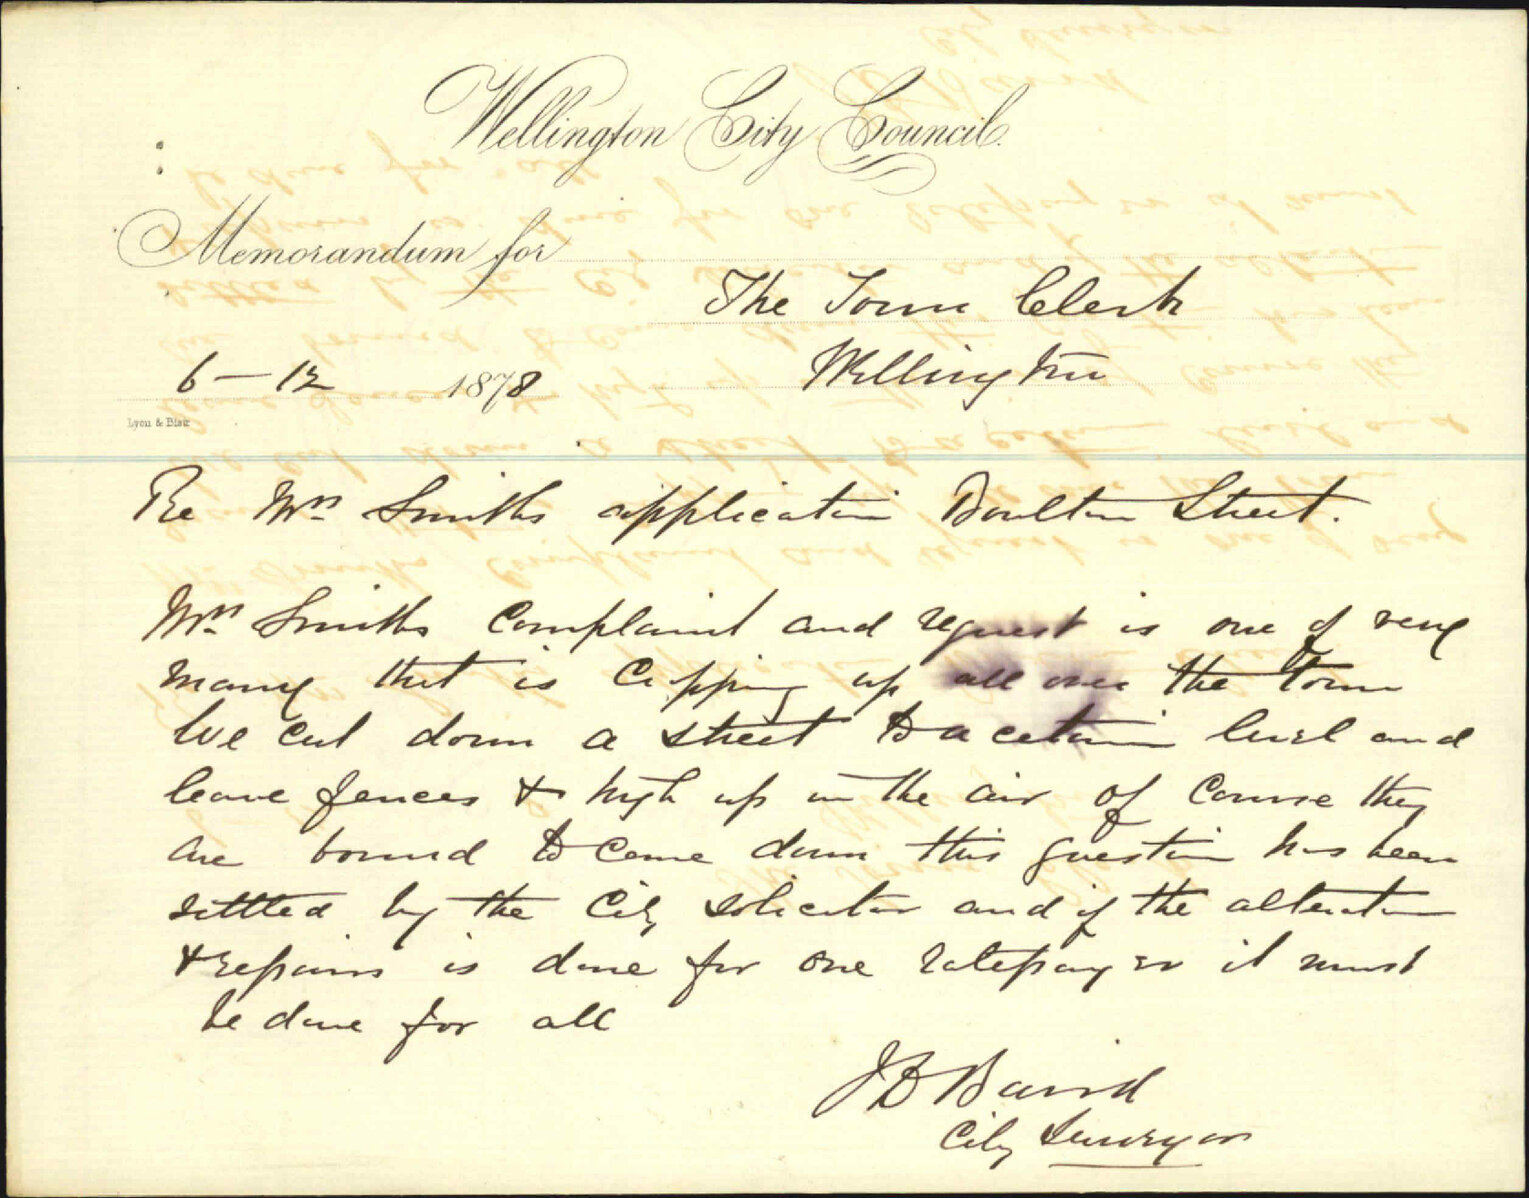 Wellington City Council.
Memorandum for
The Town Clerk
Wellington
6 – 12 1878
Lyon & Blair
Re Mrs Smiths application Boulton Street.
Mrs Smiths Complaint and request is one of very
many that is Cropping up all over the town
We cut down a street to a certain level and
leave fences & high up in the air of Course they
are bound to come down this question has been
settled by the City Solicitor and if the alteration
& repairs is done for one ratepayer it must
be done for all
J D Baird
City Surveyor